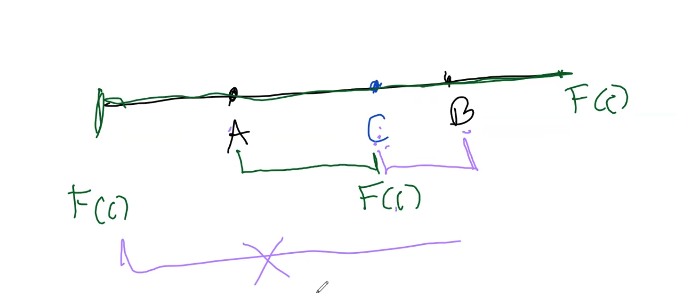 A C B F(c)
F(c) F(c)